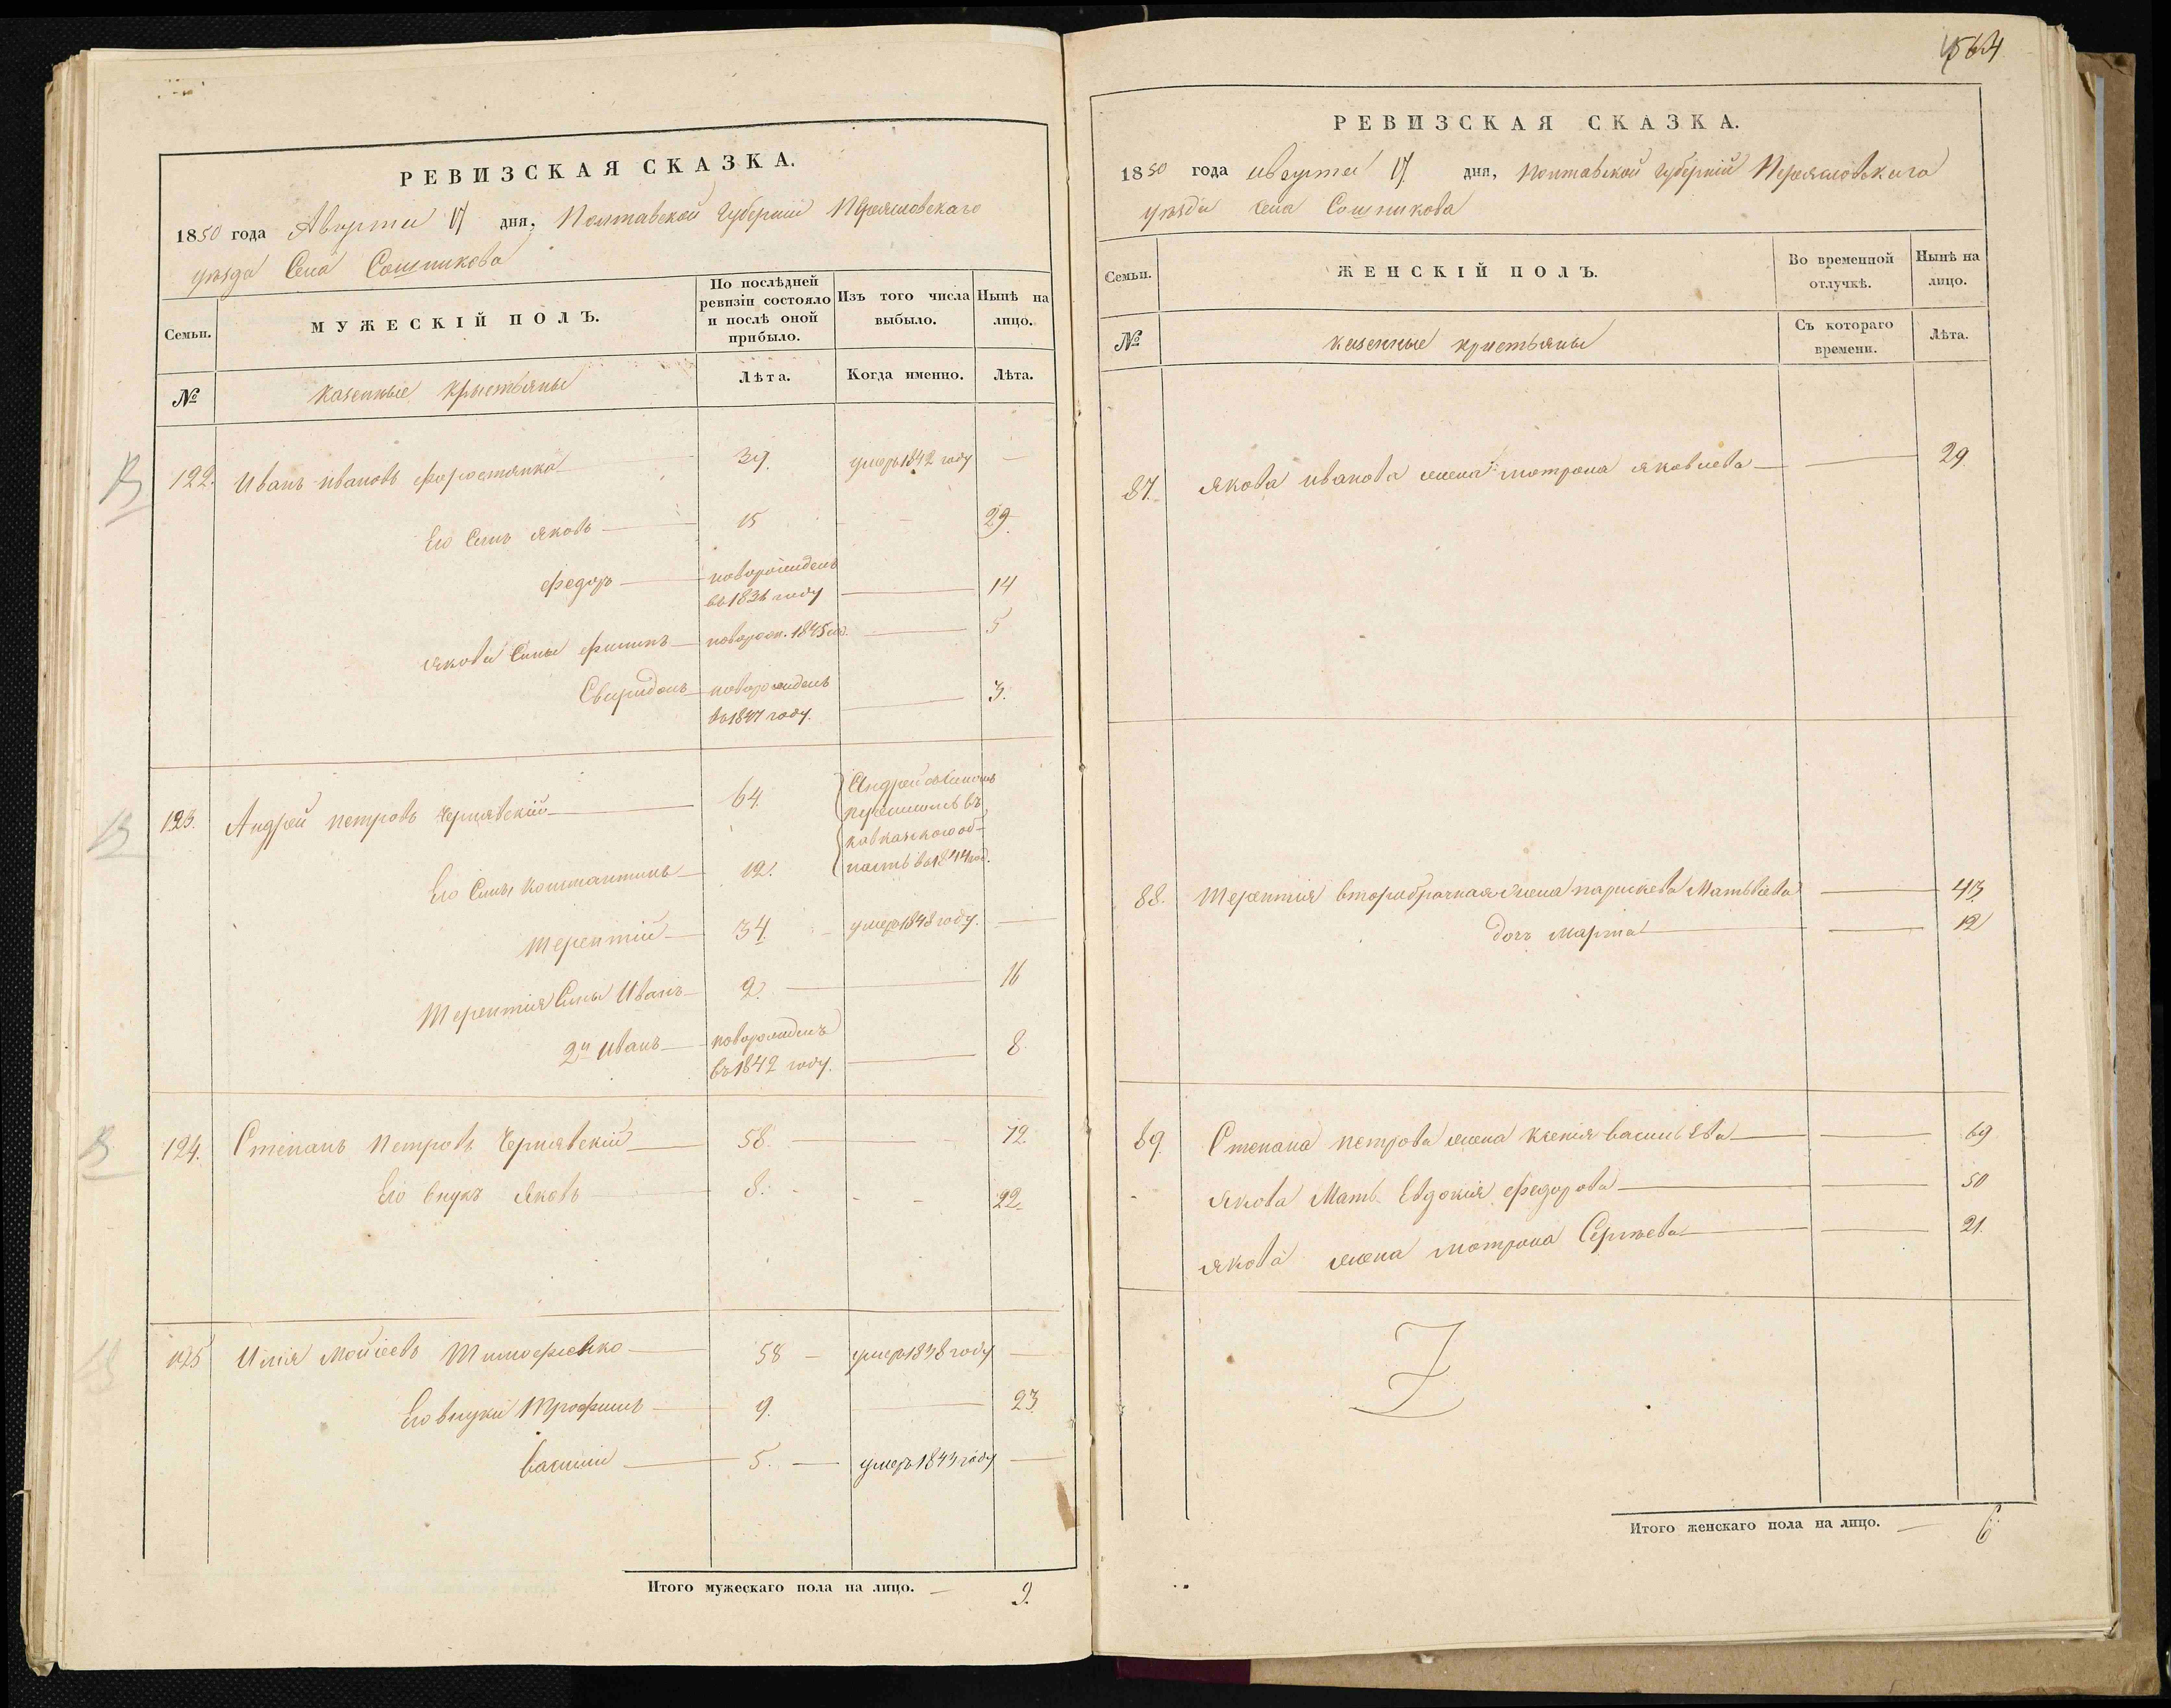 РЕВИЗСКАЯ СКАЗКА.
1850 года Августа 17 дня, Полтавской Губернии Переяславскаго
уезда Села Сошникова
Семьи.
МУЖЕСКІЙ ПОЛЪ.
По послѣдней ревизіи состояло и послѣ оной прибыло.
Изъ того числа выбыло.
Нынѣ на лицо.
№
казенные крестьяны
Лѣта.
Когда именно.
Лѣта.
122. Иванъ Ивановъ 39. умеръ 1842 году —
Его Сынъ Яковъ — 15 29.
Федоръ — новорожденъ въ 1836 году — 14
Якова Сыны Филипъ — новорож. 1845 — 5
Свиридонъ — новорожденъ въ 1847 году. — 3.
123. Андрей Петровъ Чернявскій — 64.
Андрей съ Сыномъ
переселились въ
кавказскою об-
ласть въ 1844 год.
Его Сыны Константинъ — 12.
Терентій — 34. умеръ 1848 году. —
Терентія Сыны Иванъ — 2. — 16
2й Иванъ — новорожденъ въ 1842 году. — 8.
124. Степанъ Петровъ Чернявскій — 58. — 72
Его внукъ Яковъ 8. 22.
125 Илія Мойсеевъ Тимофіенко — 58 — умеръ 1838 году —
Его внуки Трофимъ — 9. — 23.
Василий — 5. — умеръ 1843 году —
Итого мужескаго пола на лицо. — 9.
564
РЕВИЗСКАЯ СКАЗКА.
1850 года августа 17 дня, Полтавской Губерній Переяславскаго
уезда села Сошникова
Семьи.
ЖЕНСКІЙ ПОЛЪ.
Во временной отлучкѣ.
Нынѣ на лицо.
№
казенные крестьяны
Съ котораго времени.
Лѣта.
87. Якова Иванова жена мотрона Яковлева — 29
88. Терентія второбрачная жена парискева Матвѣева — 43
дочъ марта — 12
89. Степана петрова жена Ксенія василЕва — 69
Якова Мать Евдокия федорова — 50
Якова жена мотрона Сергѣева — 21.
Итого женскаго пола на лицо. — 6.